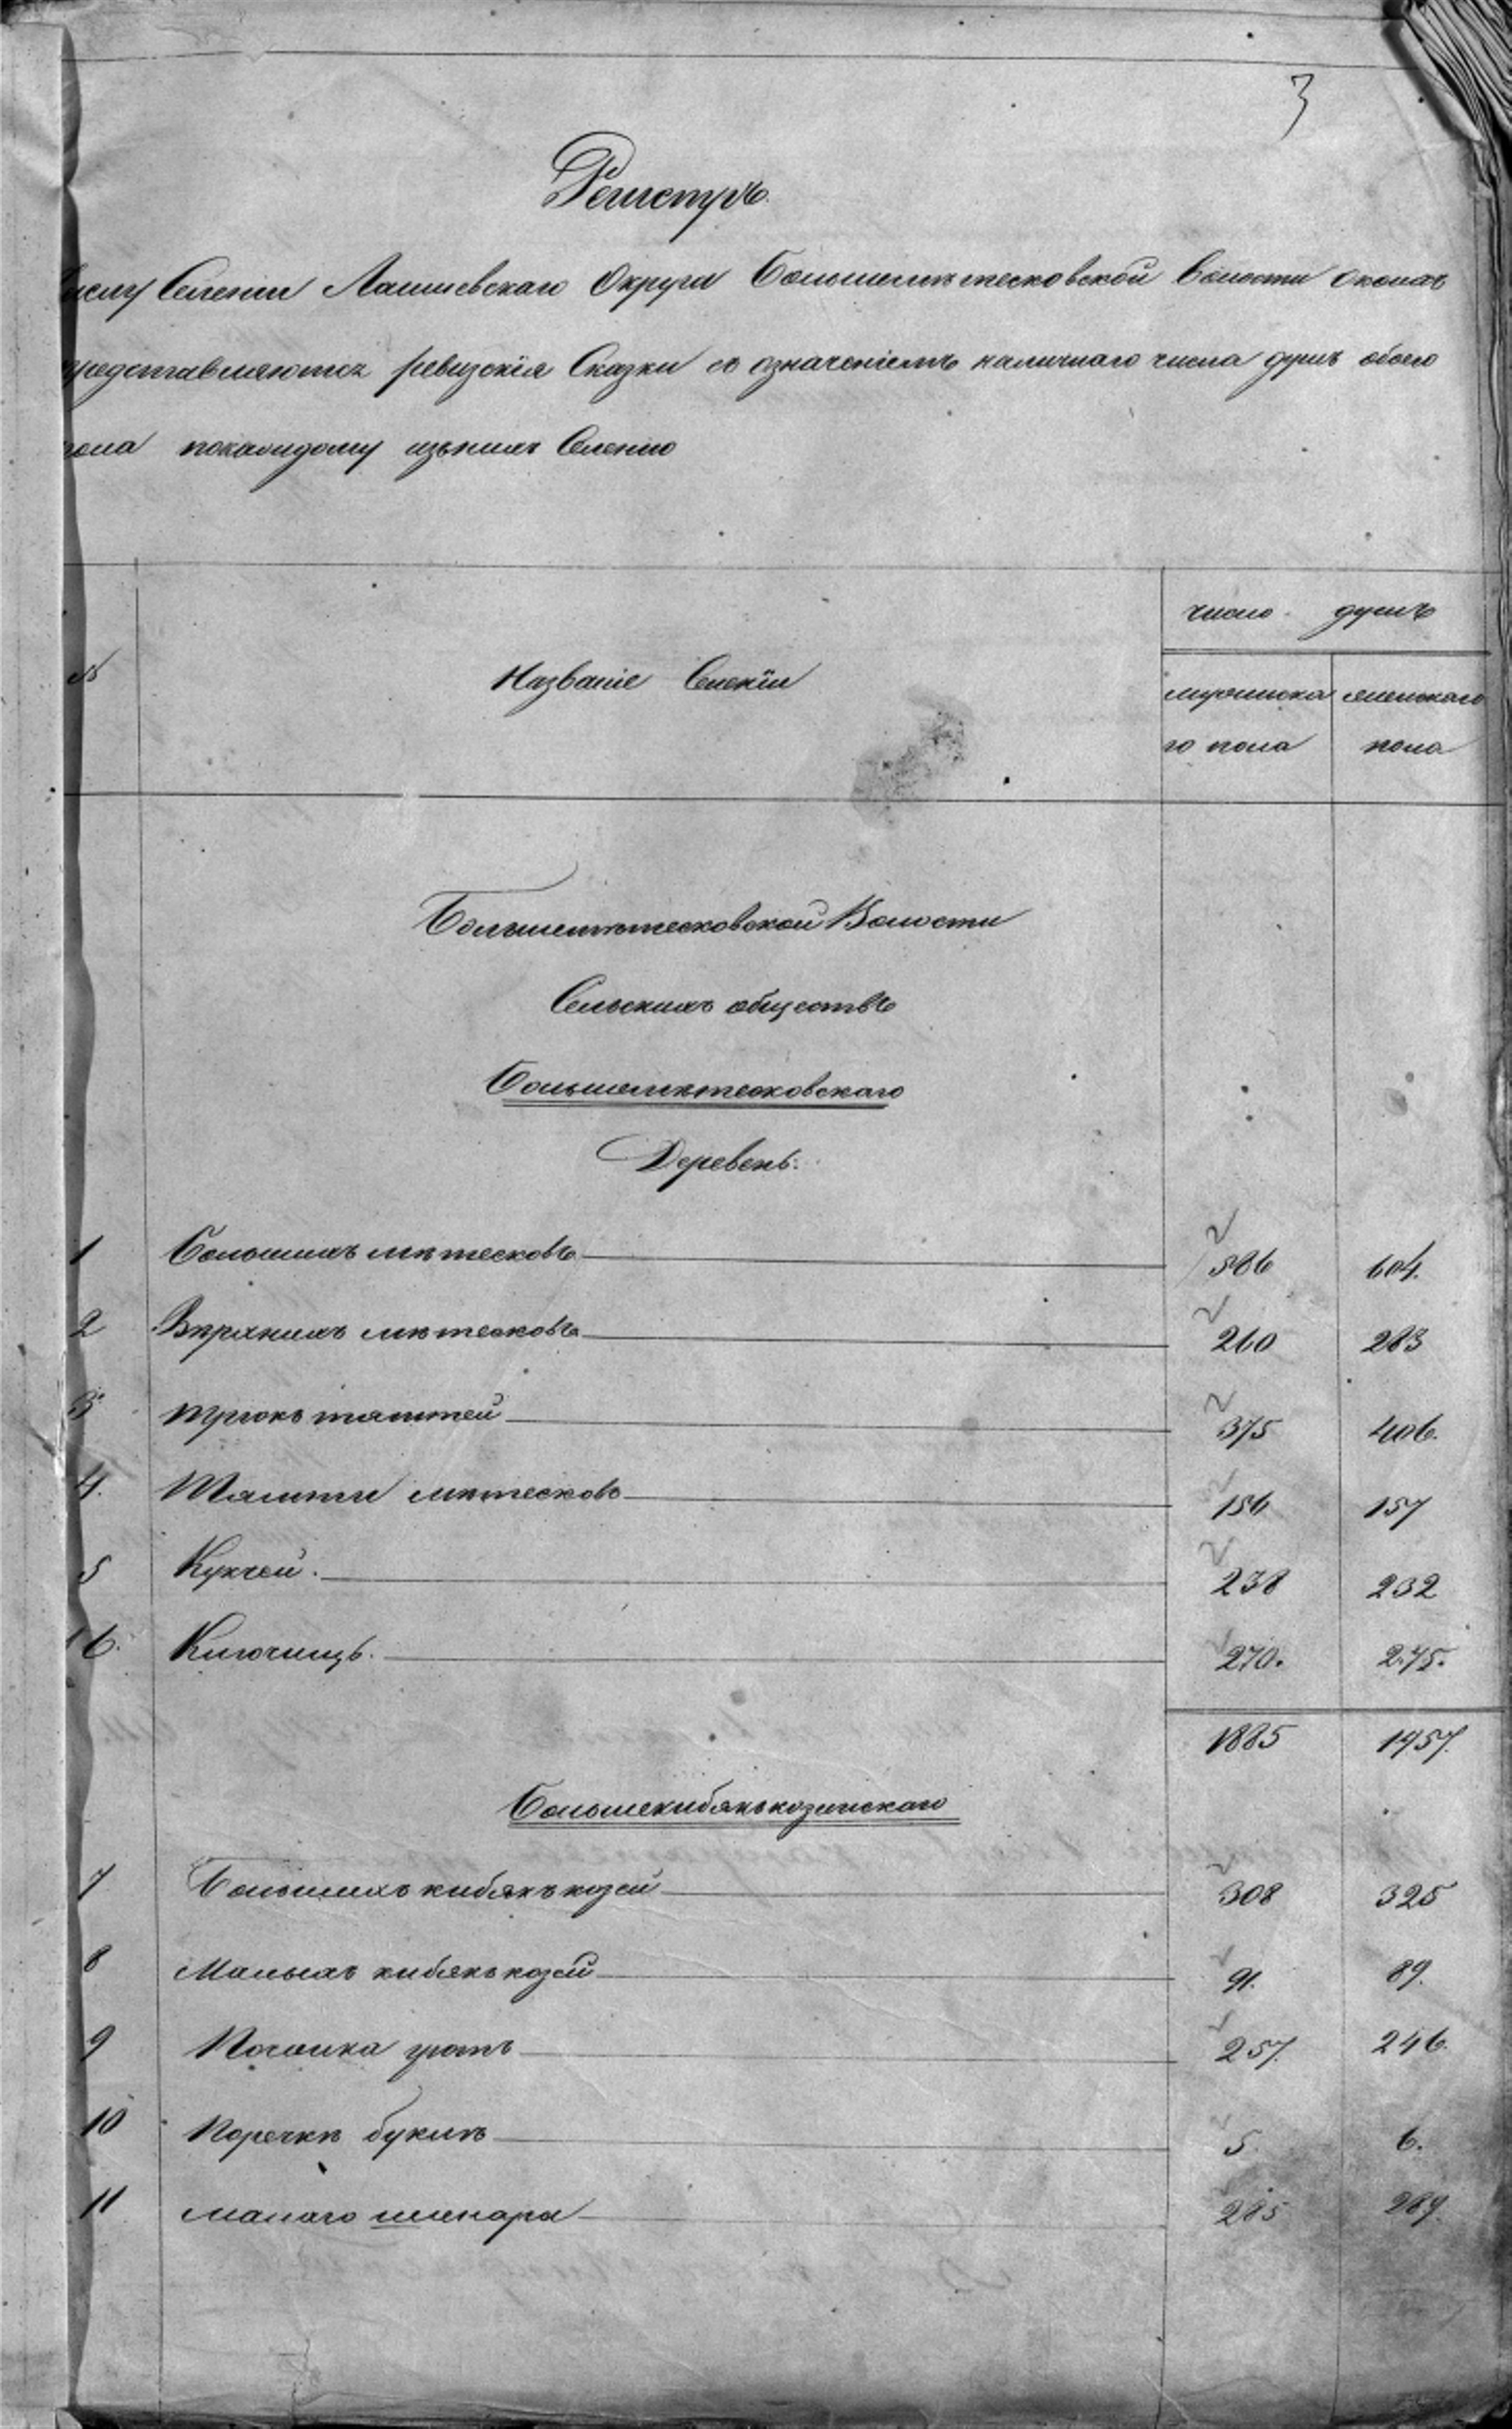 3
Регистръ
числу Селеніи Лаишевскаго Округа Большеметесковской Волости о коихъ
представляются ревизскія Сказки съ означеніемъ наличнаго числа душъ обоего
пола покаждому изъ нихъ Селенію
№ Названіе Селеніи число душъ
мужиска женскаго
го пола пола
Большемѣтесковской Волости
Сельскихъ обществъ
Большемѣтесковскаго
Деревень:
1 Большихъ мѣтесковъ 586 604.
2 Верхнихъ мѣтесковъ 260 283
3 трюкъ тямтей 375 406.
4. Тямти мѣтесковъ 156 157
5 Кукчеи. 238 232
6. Ключищь. 270. 275.
1885 1957.
Большекибякъкозинскаго
7 Большихъ кибякъ козей 308 325
8 Малыхъ кибякъ козей 91. 89.
9 257. 246.
10 5. 6.
11 малаго шинара 285 289.